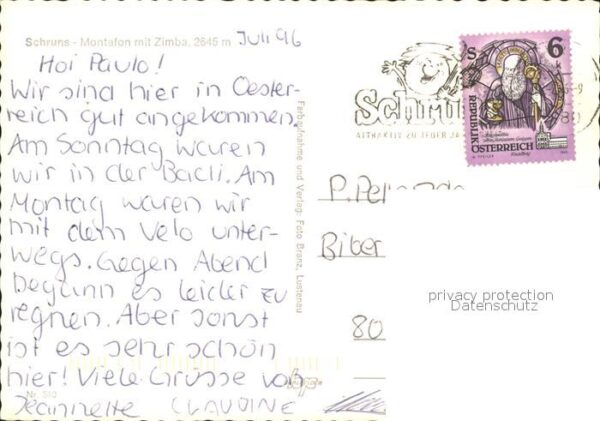 Schruns - Montafon mit Zimba, 2645 m
Juli 96
Hoi Paulo!
Wir sind hier in Oester-
reich gut angekommen.
Am Sonntag waren
wir in der Badi. Am
Montag waren wir
mit dem Velo unter-
wegs. Gegen Abend
begann es leider zu
regnen. Aber sonst
ist es sehr schön
hier! Viele Grüsse von
Jeannette CLAUDINE
Nr. 510
Farbaufnahme und Verlag: Foto Branz, Lustenau
Schruns
ATTRAKTIV ZU JEDER
S 6
REPUBLIK
ÖSTERREICH
P.
Biber
80
privacy protection
Datenschutz